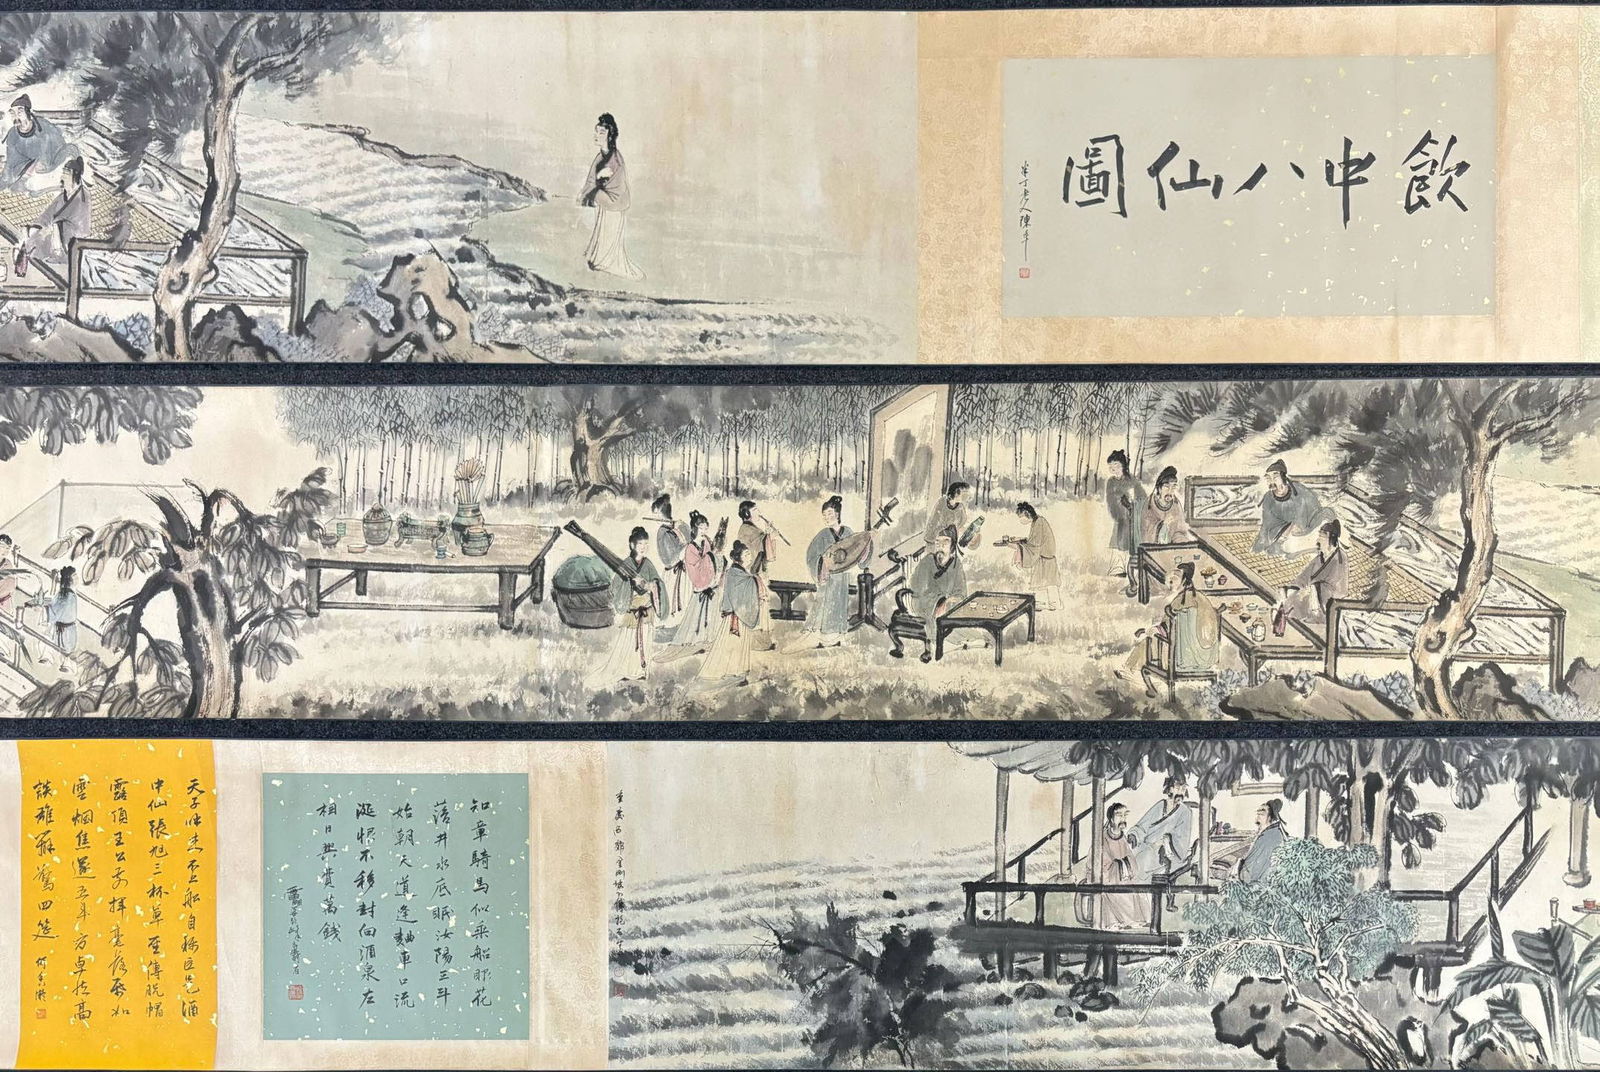 飲中八仙圖
知章騎馬似乘船眼花
落井水底眠汝陽三斗
始朝天道逢麯車口流
涎恨不移封向酒泉左
相日興費萬錢
天子呼来不上船自稱臣是酒
中仙張旭三杯草聖傳脫帽
露頂王公前揮毫落紙如
雲烟焦遂五斗方卓然高
談雄辯驚四筵
何香凝